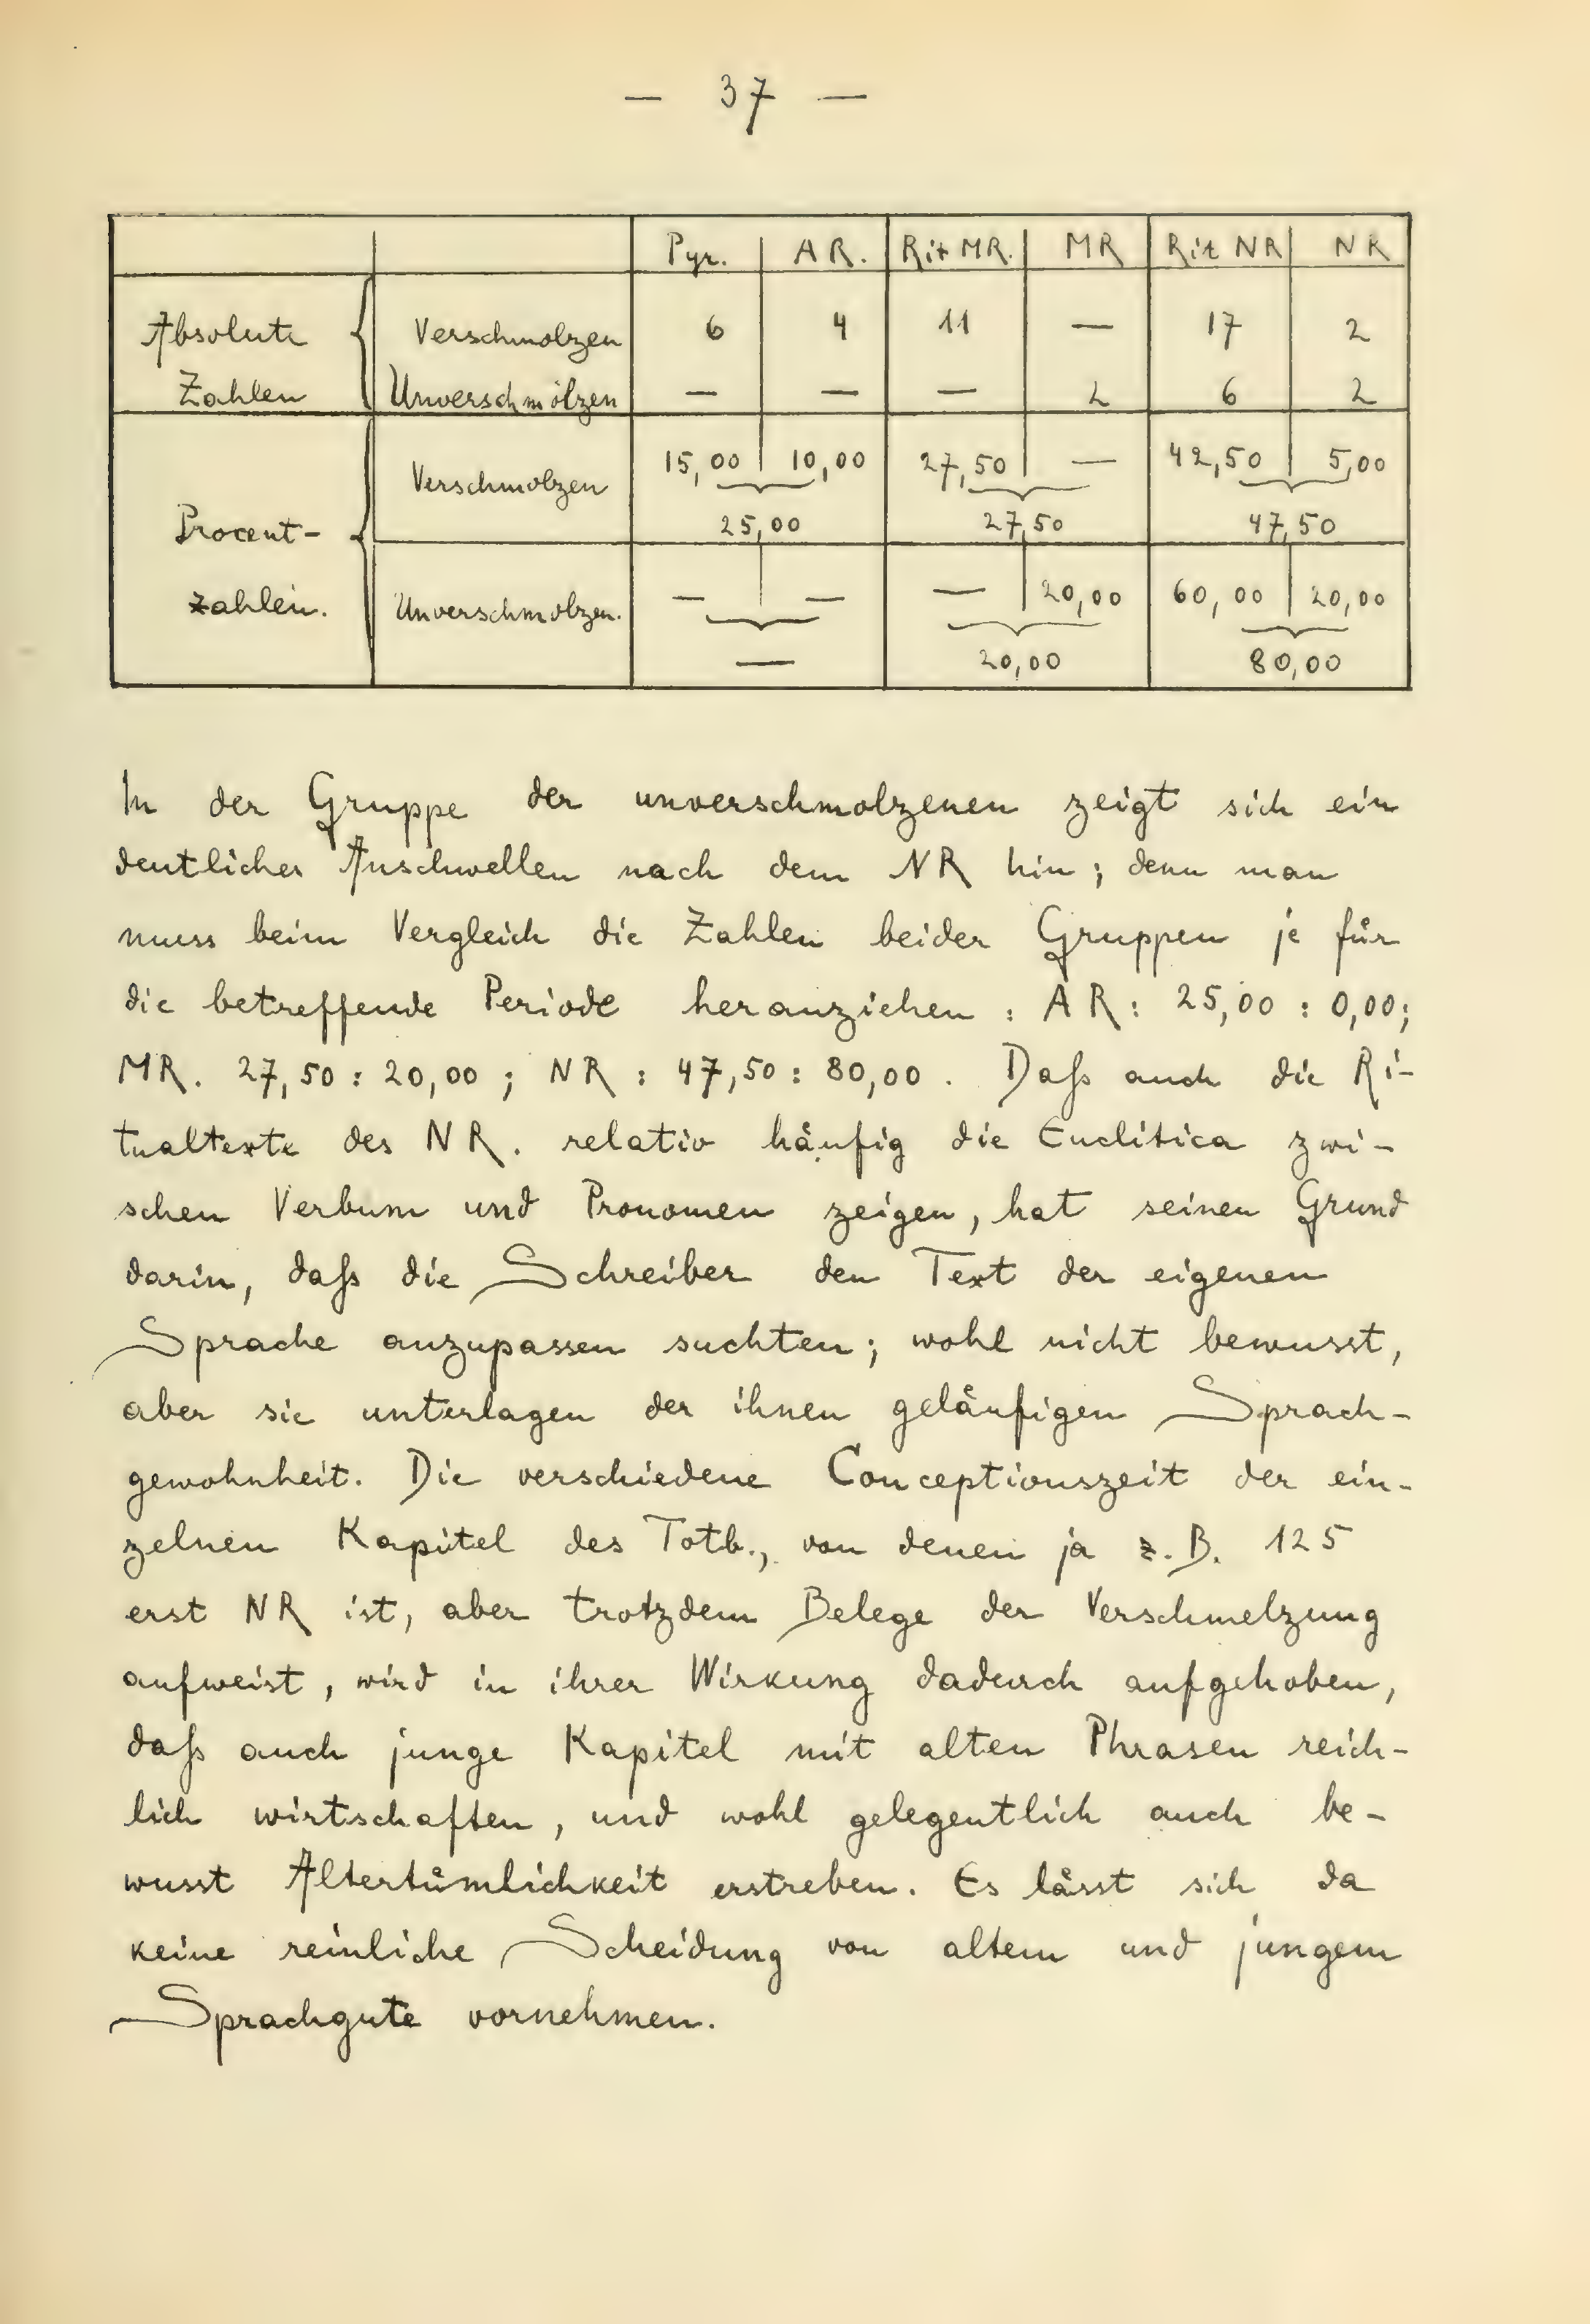 — 37 —
Pyr. AR. Rit MR. MR Rit NR NR
Absolute Verschmolzen 6 4 11 — 17 2
Zahlen Unverschmolzen — — — 2 6 2
Verschmolzen 15,00 10,00 27,50 — 42,50 5,00
Procent- 25,00 27,50 47,50
zahlen. Unverschmolzen. — — — 20,00 60,00 20,00
— 20,00 80,00
In der Gruppe der unverschmolzenen zeigt sich ein
deutliches Anschwellen nach dem NR hin; denn man
muss beim Vergleich die Zahlen beider Gruppen je für
die betreffende Periode heranziehen: AR: 25,00 : 0,00;
MR. 27,50 : 20,00 ; NR : 47,50 : 80,00. Daß auch die Ri-
tualtexte des NR. relativ häufig die Enclitica zwi-
schen Verbum und Pronomen zeigen, hat seinen Grund
darin, daß die Schreiber den Text der eigenen
Sprache anzupassen suchten; wohl nicht bewusst,
aber sie unterlagen der ihnen geläufigen Sprach-
gewohnheit. Die verschiedene Conceptionszeit der ein-
zelnen Kapitel des Totb., von denen ja z.B. 125
erst NR ist, aber trotzdem Belege der Verschmelzung
aufweist, wird in ihrer Wirkung dadurch aufgehoben,
daß auch junge Kapitel mit alten Phrasen reich-
lich wirtschaften, und wohl gelegentlich auch be-
wusst Altertümlichkeit erstreben. Es lässt sich da
keine reinliche Scheidung von altem und jungem
Sprachgute vornehmen.